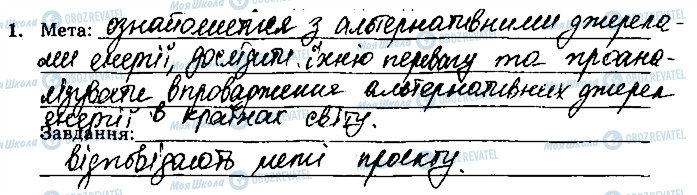 1. Мета: ознайомитися з альтернативними джерела-
ми енергії, дослідити їхню перевагу та проана-
лізувати впровадження альтернативних джерел
енергії в країнах світу.
Завдання:
відповідають меті проєкту.